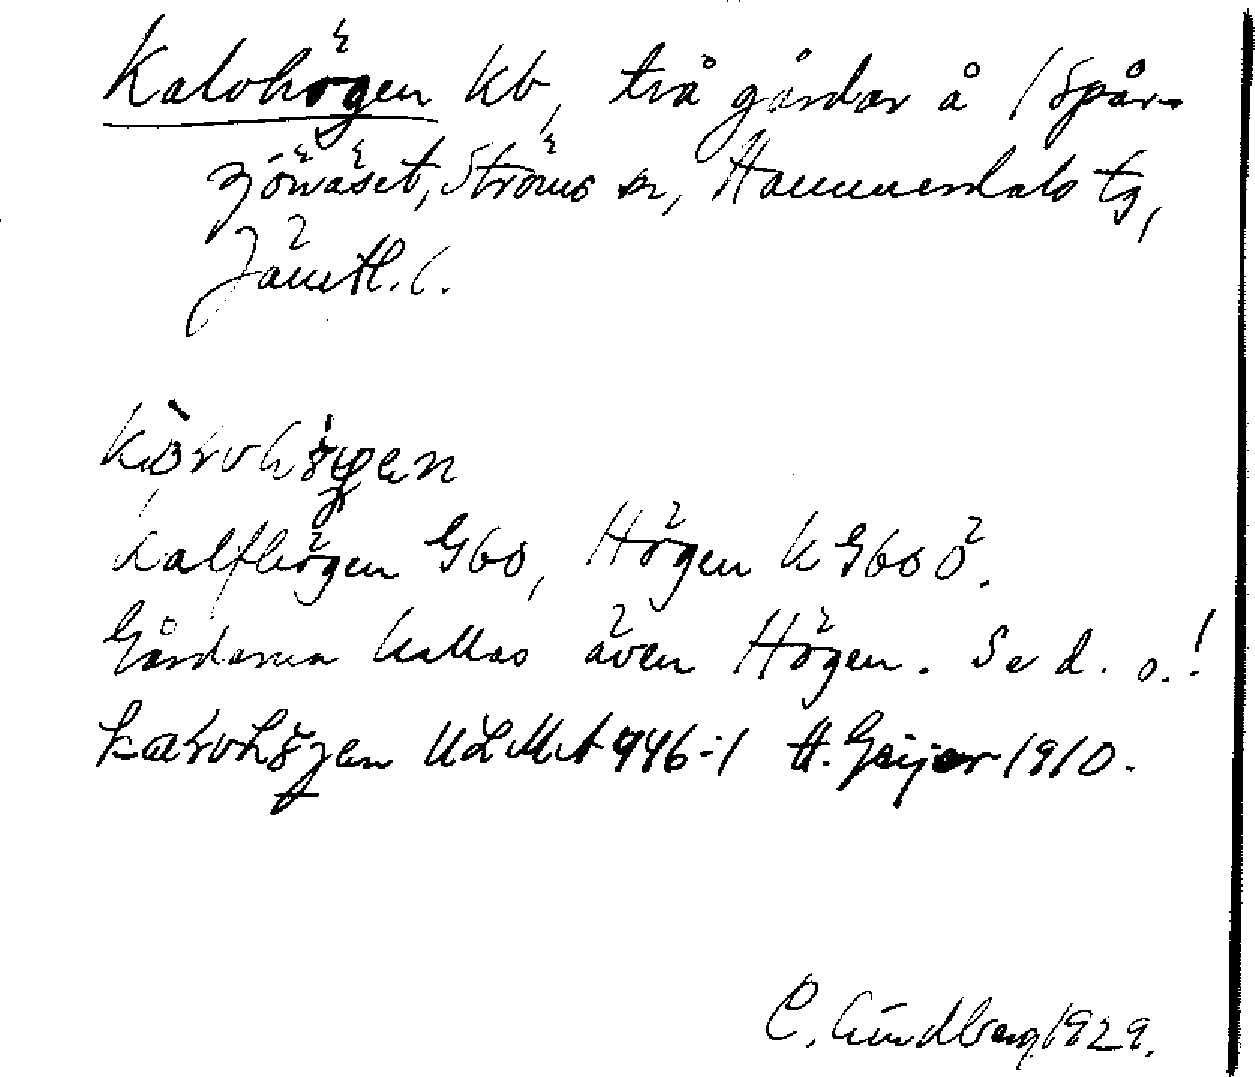 Kalvhögen kb, två gårdar å (Spår-
sjönäset, Ströms sn, Hammerdals tg,
Jämtl. l.
Kalfhögen Gbo, Högen k Gbo ö.
Gårdarna kallas även Högen. Se d. o.!
ULMA 946:1 H. Geijer 1910.
C. Lindberg 1929.